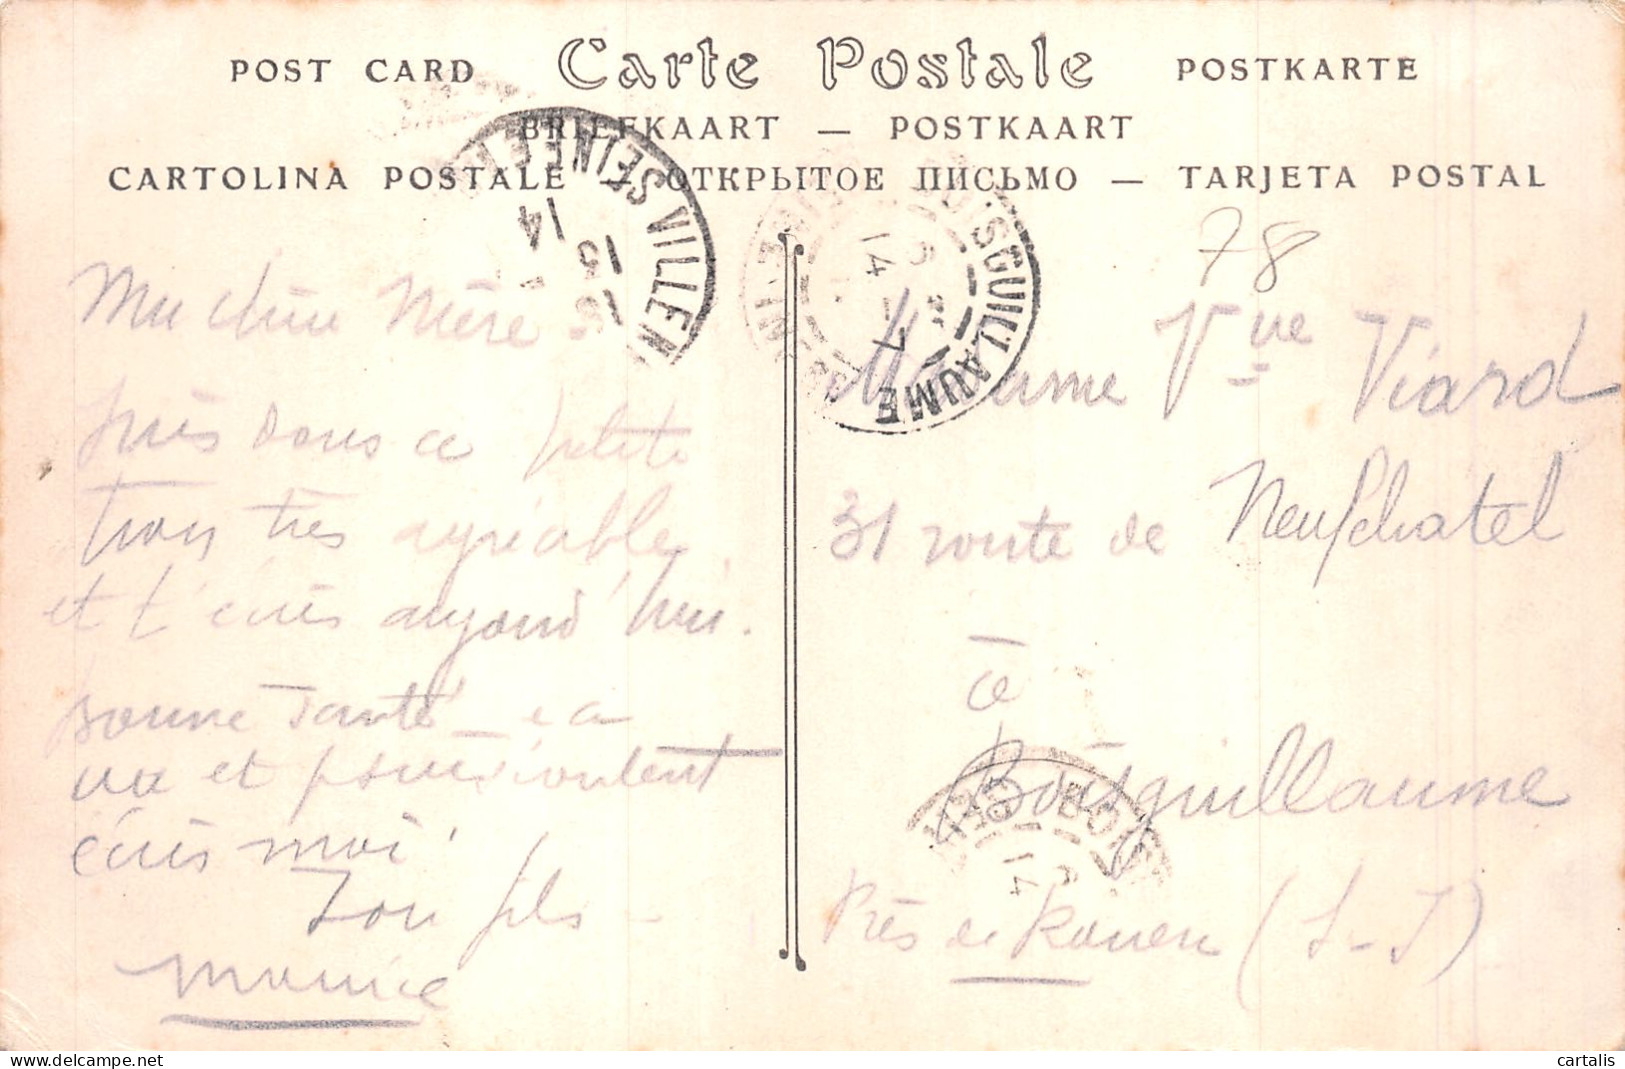 POST CARD Carte Postale POSTKARTE
BRIEFKAART — POSTKAART
CARTOLINA POSTALE — ОТКРЫТОЕ ПИСЬМО — TARJETA POSTAL
VILLEN SEINE
15
14
BOISGUILLAUME
14
78
Ma chère Mère
dans ce petite
très agréable
et t'écris aujourd'hui.
Bonne santé
va et
écris moi
Ton fils
Maurice
Madame Vve Viard
31 route de Neufchatel
à
Boisguillaume
BOIS
14
Près de Rouen (S-I)
cartalis